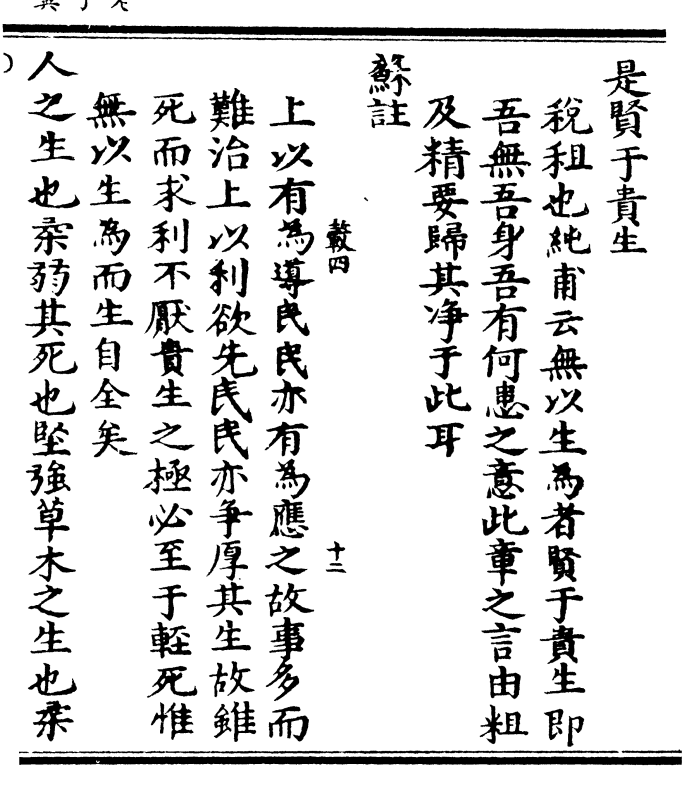 是賢于貴生
稅租也純甫云無以生為者賢于貴生即
吾無吾身吾有何患之意此章之言由粗
及精要歸其净于此耳
蘇註
轂四
十二
上以有為導民民亦有為應之故事多而
難治上以利欲先民民亦爭厚其生故雖
死而求利不厭貴生之極必至于輕死惟
無以生為而生自全矣
人之生也柔弱其死也堅強草木之生也柔